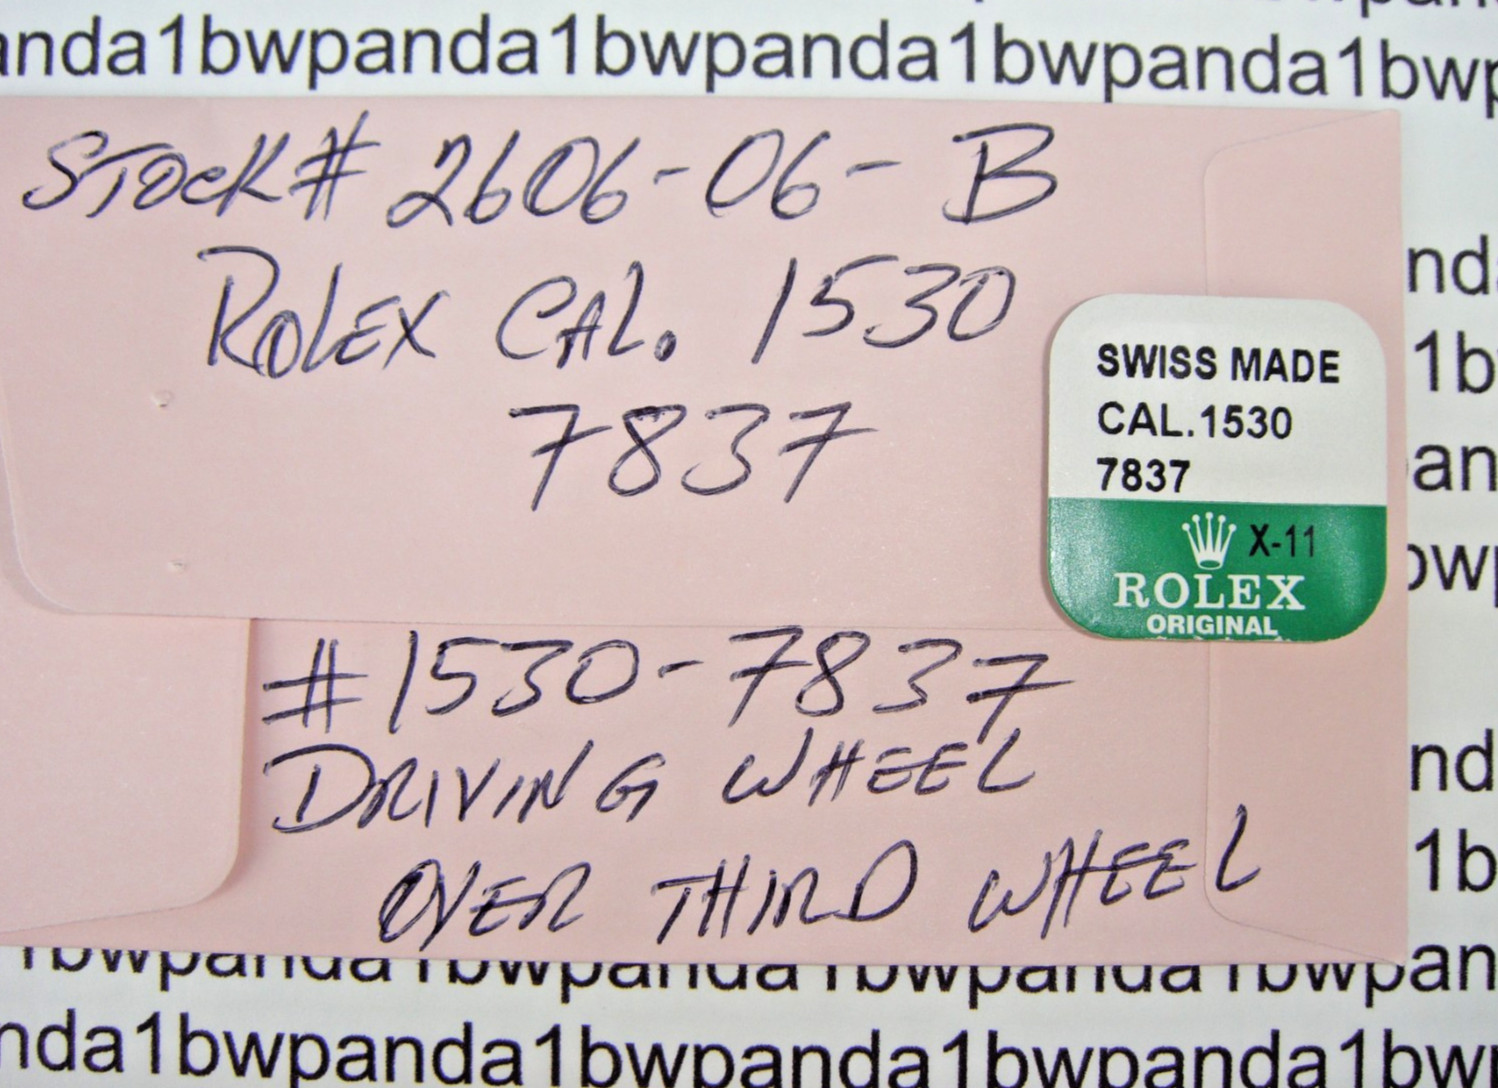 anda1bwpanda1bwpanda1bwpanda1bwp
STOCK# 2606-06-B
ROLEX CAL. 1530
7837
SWISS MADE
CAL.1530
7837
X-11
ROLEX
ORIGINAL
#1530-7837
DRIVING WHEEL
OVER THIRD WHEEL
nd
1b
an
bwp
nd
1b
1bwpanda1bwpanda1bwpanda1bwpan
nda1bwpanda1bwpanda1bwpanda1bw